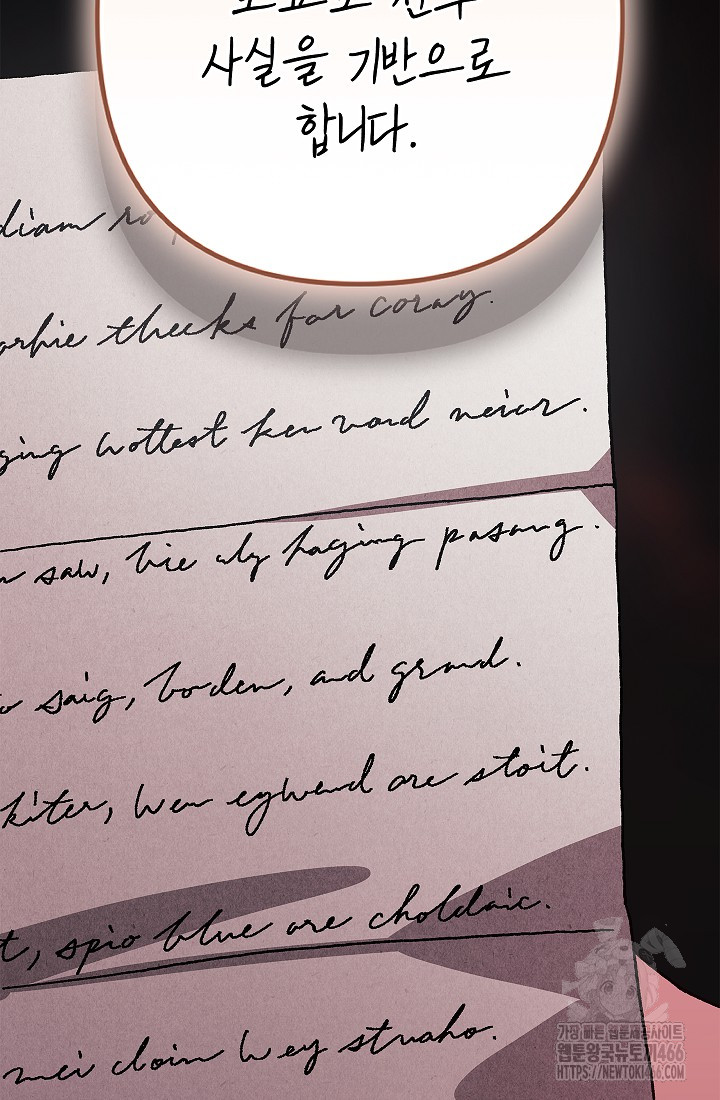 사실을 기반으로
합니다.
diam
thecks for coray.
ging wottest ken vard neiar.
saw, bie aly haging pasang.
saig, boden, and grand.
kiter, wen eywend are stoit.
t, spio blue are choldaic.
mei cloin wey struaho.
가장 빠른 웹툰제공사이트
웹툰왕국뉴토끼466
HTTPS://NEWTOKI466.COM